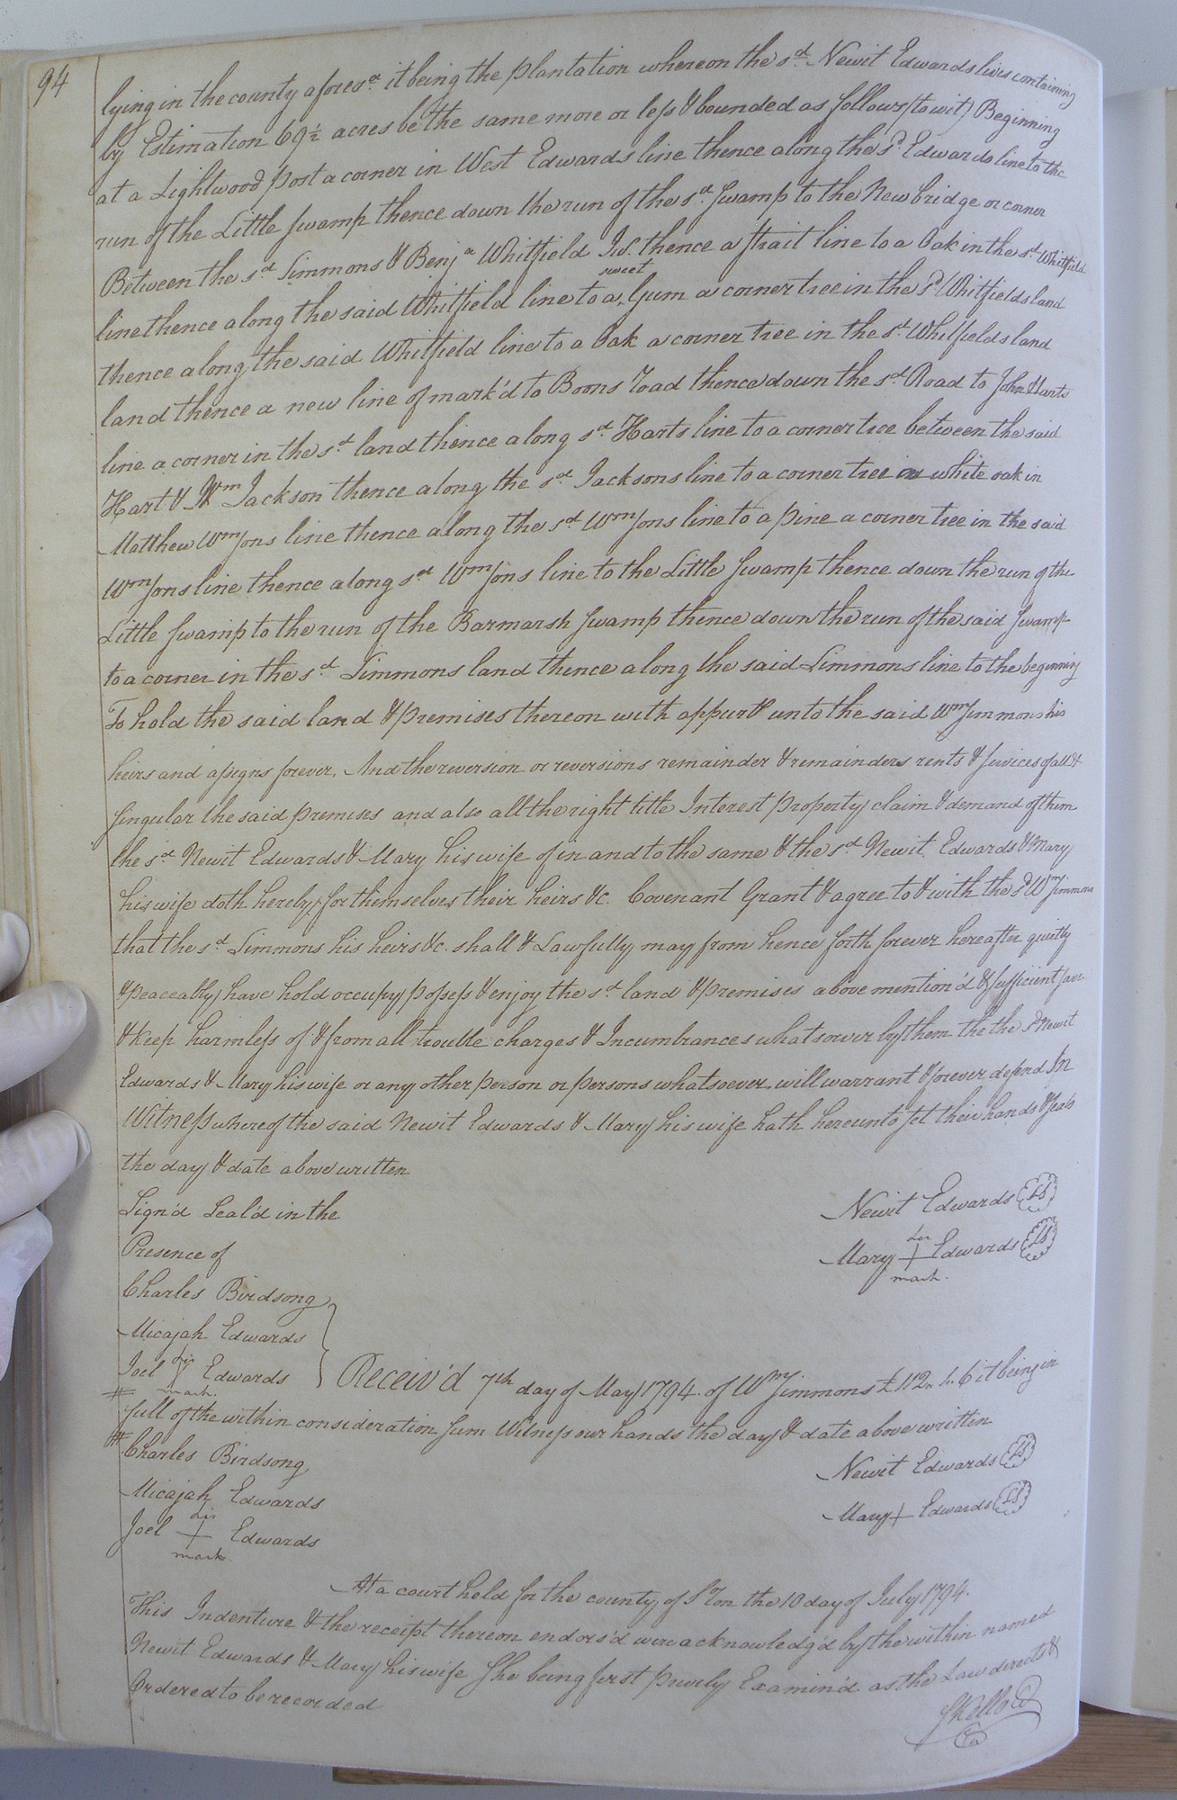 94
lying in the county afores.d it being the plantation whereon the s.d Newit Edwards lives containing
by Estimation 69½ acres be the same more or less & bounded as follows (to wit) Beginning
at a Lightwood post a corner in West Edwards line thence along the s.d Edwards line to the
run of the Little Swamp thence down the run of the s.d Swamp to the New bridge or corner
Between the s.d Simmons & Benj.a Whitfield thence a strait line to a Oak in the s.d Whitfield
line thence along the said Whitfield line to a sweet Gum a corner tree in the s.d Whitfields land
thence along the said Whitfield line to a Oak a corner tree in the s.d Whitfields land
land thence a new line of mark'd to Boons Road thence down the s.d Road to John Harts
line a corner in the s.d land thence along s.d Harts line to a corner tree between the said
Hart & Wm Jackson thence along the s.d Jacksons line to a corner tree a white oak in
Matthew Wmsons line thence along the s.d Wmsons line to a pine a corner tree in the said
Wmsons line thence along s.d Wmsons line to the Little Swamp thence down the run of the
Little Swamp to the run of the Barmarsh Swamp thence down the run of the said Swamp
to a corner in the s.d Simmons land thence along the said Simmons line to the beginning
To hold the said land & premises thereon with appur& unto the said Wm Simmons his
heirs and assigns forever. And the reversion or reversions remainder & remainders rents & services of all &
Singular the said premises and also all the right title Interest property claim & demand of them
the s.d Newit Edwards & Mary his wife of in and to the same & the s.d Newit Edwards & Mary
his wife doth hereby for themselves their heirs &c. Covenant Grant & agree to & with the s.d Wm Simmons
that the s.d Simmons his heirs &c. shall & Lawfully may from hence forth forever hereafter quietly
& peaceably have hold occupy possess & enjoy the s.d land & premises above mention'd & sufficient save
& keep harmless of & from all trouble charges & Incumbrances whatsoever by them the the s.d Newit
Edwards & Mary his wife or any other person or persons whatsoever will warrant & forever defend In
Witness whereof the said Newit Edwards & Mary his wife hath hereunto set their hands & seals
the day & date above written
Sign'd Seal'd in the
Presence of
Newit Edwards LS
Mary her + mark Edwards LS
Charles Birdsong
Micajah Edwards
Joel his mark Edwards
Receiv'd 7th day of May 1794. of Wm Simmons £112 6 it being in
full of the within consideration sum Witness our hands the day & date above written
Charles Birdsong
Micajah Edwards
Joel his + mark Edwards
Newit Edwards LS
Mary + Edwards LS
At a court held for the county of S°ton the 10 day of July 1794.
This Indenture & the receipt thereon endors'd were acknowledg'd by the within named
Newit Edwards & Mary his wife She being first privily Examin'd as the Law directs &
Ordered to be recorded